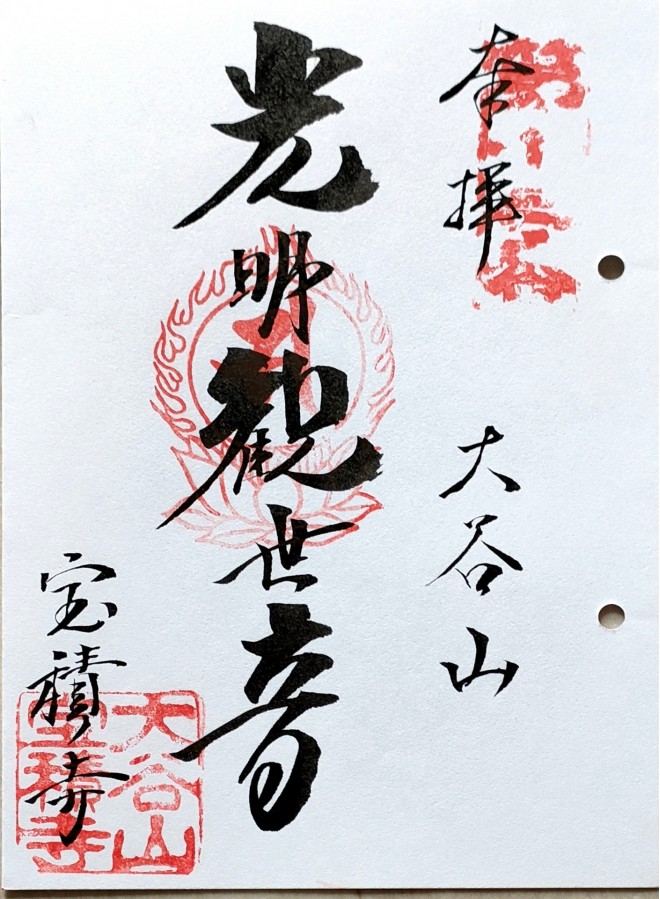 奉拝
大谷山
光明観世音
宝積寺
大谷山
宝積寺